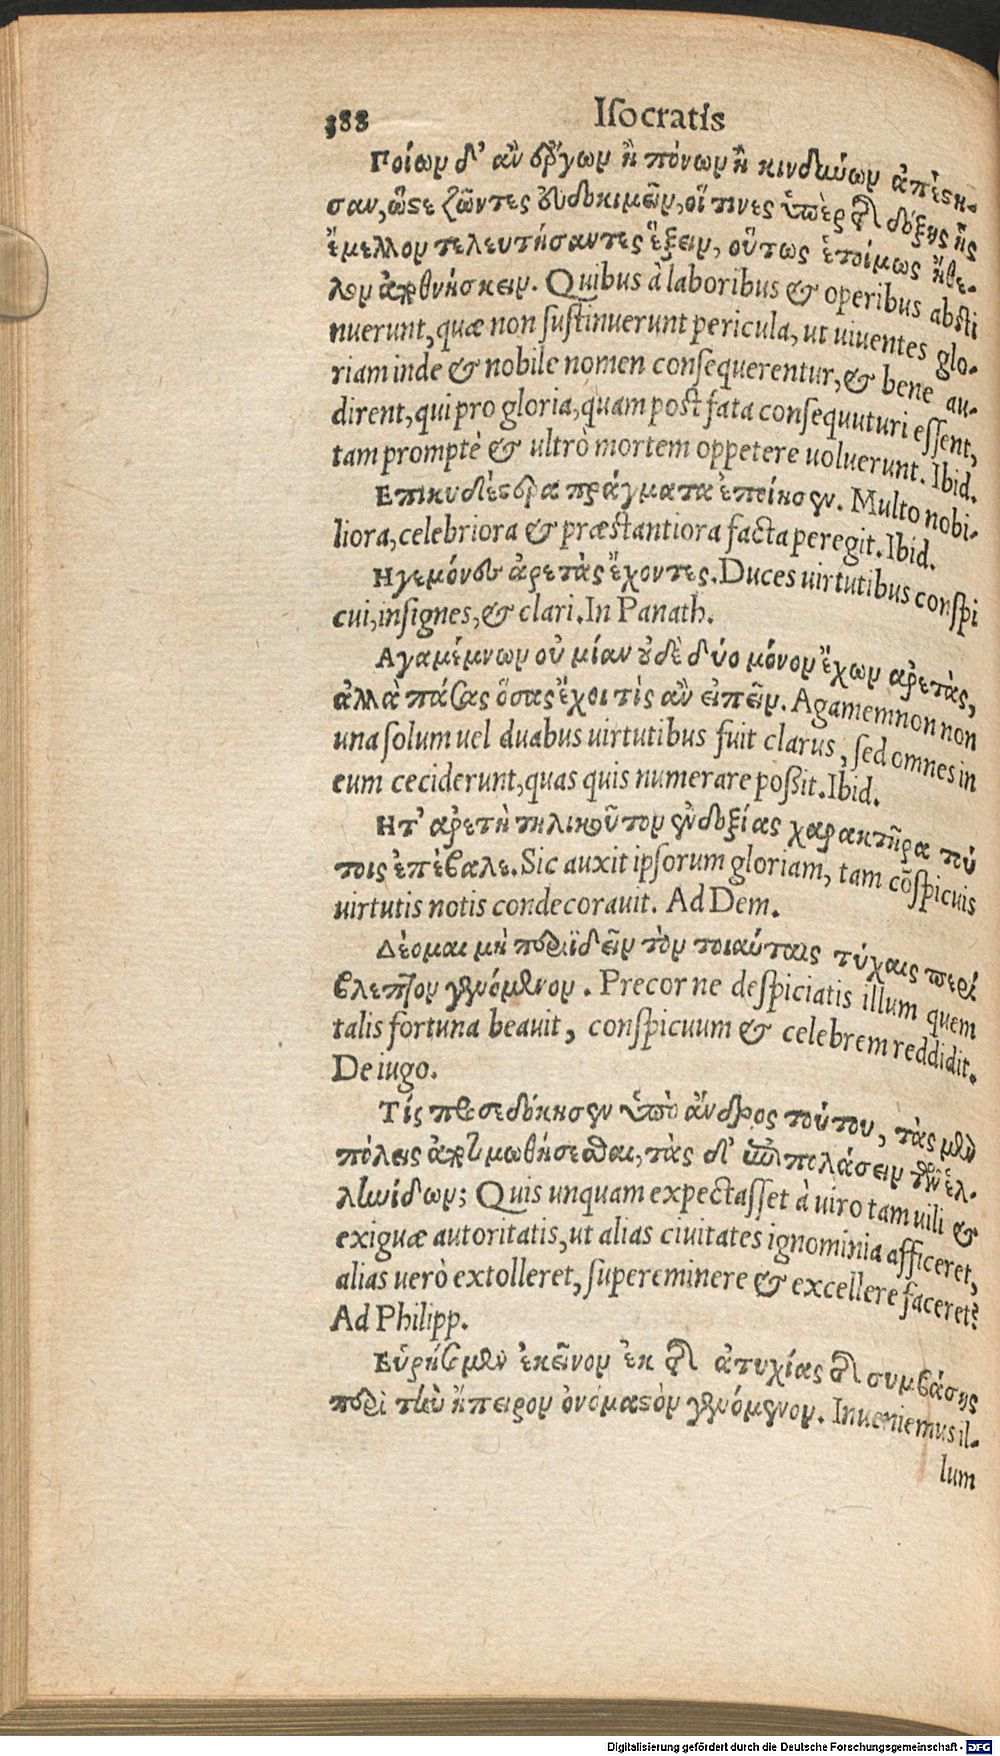 388 Iſocratis
Ποίων δ' ἂν ἔργων ἢ πόνων ἢ κινδύνων ἀπέστη-
σαν, ὥστε ζῶντες εὐδοκιμεῖν, οἵ τινες ὑπὲρ τῆς δόξης ἧς
ἔμελλον τελευτήσαντες ἕξειν, οὕτως ἑτοίμως ἤθε-
λον ἀποθνήσκειν. Quibus à laboribus & operibus abſti
nuerunt, quæ non ſuſtinuerunt pericula, ut uiuentes glo-
riam inde & nobile nomen conſequerentur, & bene au-
dirent, qui pro gloria, quam poſt fata conſequuturi eſſent,
tam promptè & ultrò mortem oppetere uoluerunt. Ibid.
Επικυδέστερα πράγματα ἐποίησεν. Multo nobi-
liora, celebriora & præſtantiora facta peregit. Ibid.
Ηγεμόνες ἀρετὰς ἔχοντες. Duces uirtutibus conſpi
cui, inſignes, & clari. In Panath.
Αγαμέμνων οὐ μίαν οὐδὲ δύο μόνον ἔχων ἀρετὰς,
ἀλλὰ πάσας ὅσας ἔχοι τὶς ἂν εἰπεῖν. Agamemnon non
una ſolum uel duabus uirtutibus fuit clarus, ſed omnes in
eum ceciderunt, quas quis numerare poßit. Ibid.
Ητ' ἀρετὴ τηλικοῦτον εὐδοξίας χαρακτῆρα τού
τοις ἐπέβαλε. Sic auxit ipſorum gloriam, tam cōſpicuis
uirtutis notis condecorauit. Ad Dem.
Δέομαι μὴ περιϊδεῖν τὸν τοιαύταις τύχαις περί
βλεπτον γενόμενον. Precor ne deſpiciatis illum quem
talis fortuna beauit, conſpicuum & celebrem reddidit.
De iugo.
Τίς προσεδόκησεν ὑπὸ ἄνδρος τούτου, τὰς μὲν
πόλεις ἀτιμωθήσεσθαι, τὰς δ' ἐπιπολάσειν τῶν ἑλ-
λήνίδων; Quis unquam expectaſſet à uiro tam uili &
exiguæ autoritatis, ut alias ciuitates ignominia afficeret,
alias uerò extolleret, ſupereminere & excellere faceret?
Ad Philipp.
Εὑρήσομεν ἐκεῖνον ἐκ τῆς ἀτυχίας τῆς συμβάσης
περὶ τὴν ἤπειρον ὀνόμαστὸν γενόμενον. Inueniemus il-
lum
Digitalisierung gefördert durch die Deutsche Forschungsgemeinschaft - DFG